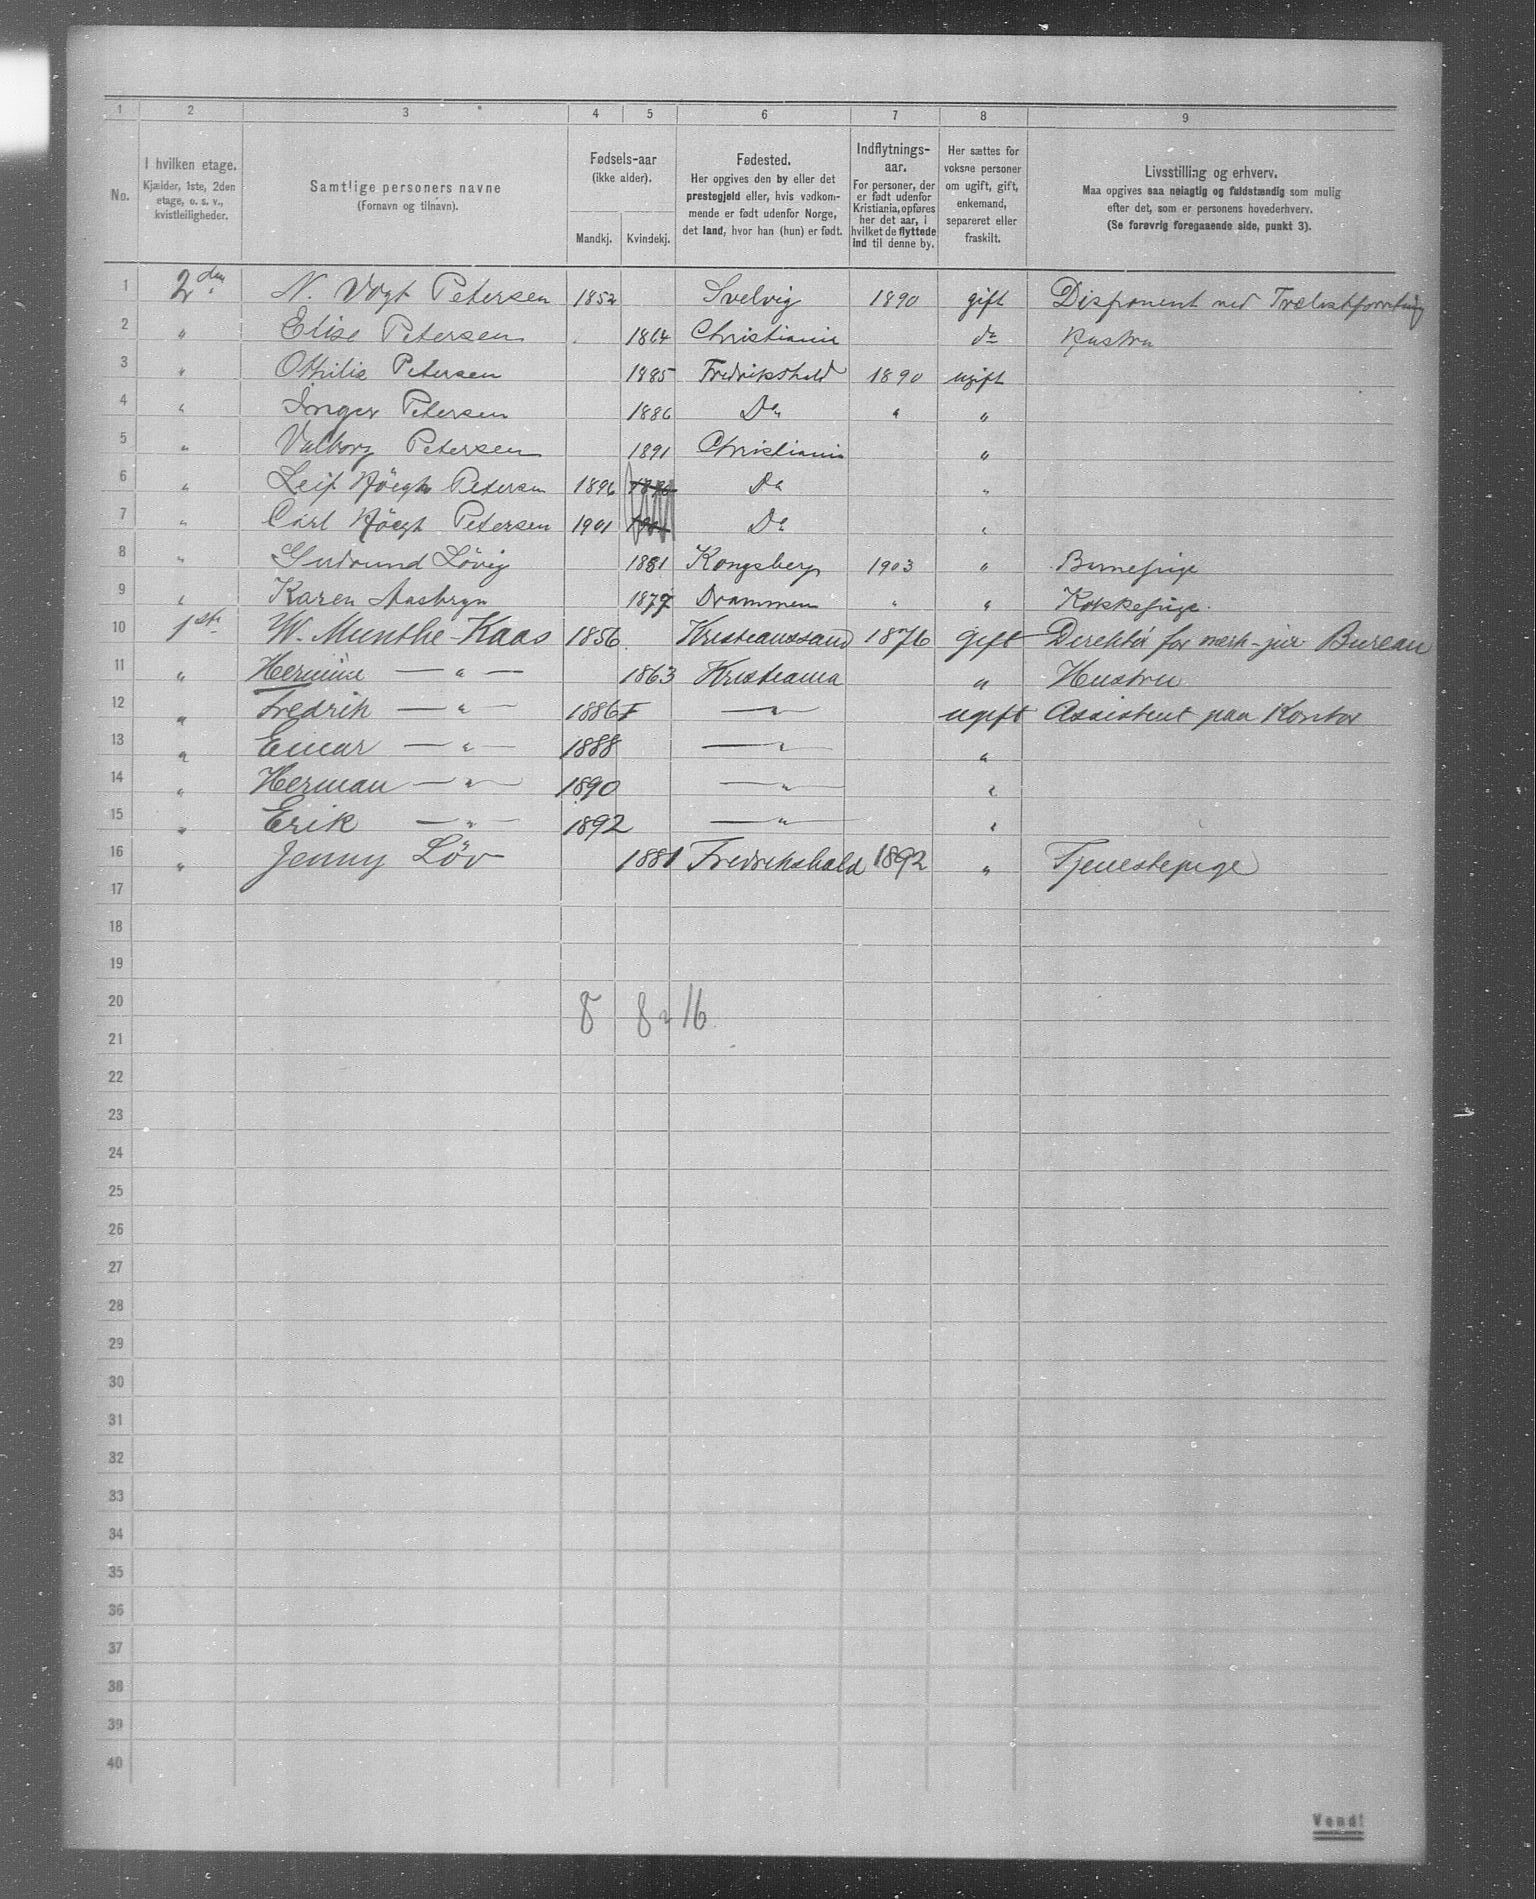 1 2 3 4 5 6 7 8 9
No.
I hvilken etage.
Kjælder, 1ste, 2den
etage, o. s. v.,
kvistleiligheder.
Samtlige personers navne
(Fornavn og tilnavn).
Fødsels-aar
(ikke alder).
Mandkj. Kvindekj.
Fødested.
Her opgives den by eller det
prestegjeld eller, hvis vedkom-
mende er født udenfor Norge,
det land, hvor han (hun) er født.
Indflytnings-
aar.
For personer, der
er født udenfor
Kristiania, opføres
her det aar, i
hvilket de flyttede
ind til denne by.
Her sættes for
voksne personer
om ugift, gift,
enkemand,
separeret eller
fraskilt.
Livsstilling og erhverv.
Maa opgives saa nøiagtig og fuldstændig som mulig
efter det, som er personens hovederhverv.
(Se forøvrig foregaaende side, punkt 3).
1 2den N. Vogt Petersen 1852 Svelvig 1890 gift Disponent ved
2 " Elise Petersen 1864 Christiania do Hustru
3 " Othilie Petersen 1885 Fredrikshald 1890 ugift
4 " Inger Petersen 1886 Do " "
5 " Valborg Petersen 1891 Christiania "
6 " Leif Høegh Petersen 1896 1896 Do "
7 " Carl Høegh Petersen 1901 1901 Do "
8 " Gudrund Løvig 1881 Kongsberg 1903 " Barnepige
9 " Karen Aasbryn 1877 Drammen " " Kokkepige.
10 1ste W. Munthe-Kaas 1856 Kristianssand 1876 gift Direktør for merk-jur Bureau
11 " Hermine — " — 1863 Kristiania " Hustru
12 " Fredrik — " — 1886 — " — ugift Assistent paa Kontor
13 " Einar — " — 1888 — " — "
14 " Herman — " — 1890 — " — "
15 " Erik — " — 1892 — " — "
16 " Jenny Löv 1881 Fredrikshald 1892 " Tjenestepige
17
18
19
20 8 8 = 16.
21
22
23
24
25
26
27
28
29
30
31
32
33
34
35
36
37
38
39
40
Vend!